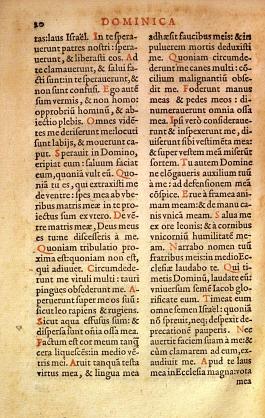 20 DOMINICA
tas: laus Israël. In te spera-
uerunt patres nostri: spera-
uerunt, & liberasti eos. Ad
te clamauerunt, & salui fa-
cti sunt: in te sperauerunt, &
non sunt confusi. Ego autē
sum vermis, & non homo:
opprobriū hominū, & ab-
iectio plebis. Omnes vidēn-
tes me deriserunt me: locuti
sunt labijs, & mouerunt ca-
put. Sperauit in Domino,
eripiat eum: saluum faciat
eum, quoniā vult eū. Quo-
niā tu es, qui extraxisti me
de ventre: spes mea ab vbe-
ribus matris meæ: in te pro-
iectus sum ex vtero. De vē-
tre matris meæ, Deus meus
es tu: ne discesseris à me.
Quoniam tribulatio pro-
xima est: quoniam non est,
qui adiuuet. Circumdede-
runt me vituli multi: tauri
pingues obsederunt me. A-
peruerunt super me os suū:
sicut leo rapiens & rugiens.
Sicut aqua effusus sum: &
dispersa sunt oīa ossa mea.
Factum est cor meum tanq̄
cera liquescēs: in medio vē-
tris mei. Aruit tanquā testa
virtus mea, & lingua mea
adhæsit faucibus meis: & in
puluerem mortis deduxisti
me. Quoniam circumde-
derunt me canes multi: cō-
cilium malignantiū obse-
dit me. Foderunt manus
meas & pedes meos: di-
numerauerunt omnia ossa
mea. Ipsi verò consideraue-
runt & inspexerunt me, di-
uiserunt sibi vestimēta mea:
& super vestem meā miserūt
sortem. Tu autem Domine
ne elōgaueris auxilium tuū
à me: ad defensionem meā
cōspice. Erue à framea ani-
mam meam: & de manu ca-
nis vnicā meam. Salua me
ex ore leonis: & à cornibus
vnicorniū humilitatē me-
am. Narrabo nomen tuū
fratribus meis: in medio Ec-
clesiæ laudabo te. Qui ti-
metis Dominū, laudate eū:
vniuersum semē Iacob glo-
rificate eum. Timeat eum
omne semen Israël: quoniā
nō spreuit, neq; despexit de-
precationē pauperis. Nec
auertit faciem suam à me: &
cùm clamarem ad eum, ex-
audiuit me. Apud te laus
mea in Ecclesia magna: vota
mea